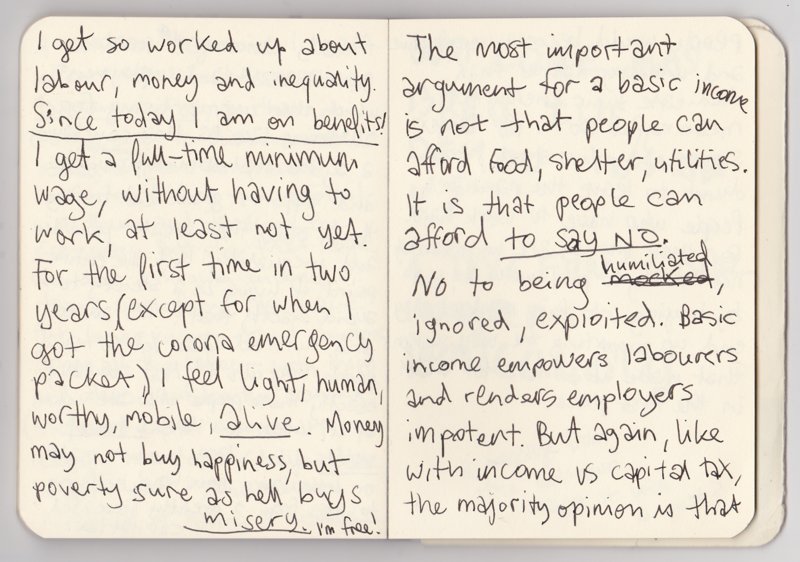 I get so worked up about
labour, money and inequality.
Since today I am on benefits!
I get a full-time minimum
wage, without having to
work, at least not yet.
For the first time in two
years (except for when I
got the corona emergency
packet) I feel light, human,
worthy, mobile, alive. Money
may not buy happiness, but
poverty sure as hell buys
misery. I'm free!
The most important
argument for a basic income
is not that people can
afford food, shelter, utilities.
It is that people can
afford to say NO.
No to being mocked humiliated,
ignored, exploited. Basic
income empowers labourers
and renders employers
impotent. But again, like
with income vs capital tax,
the majority opinion is that